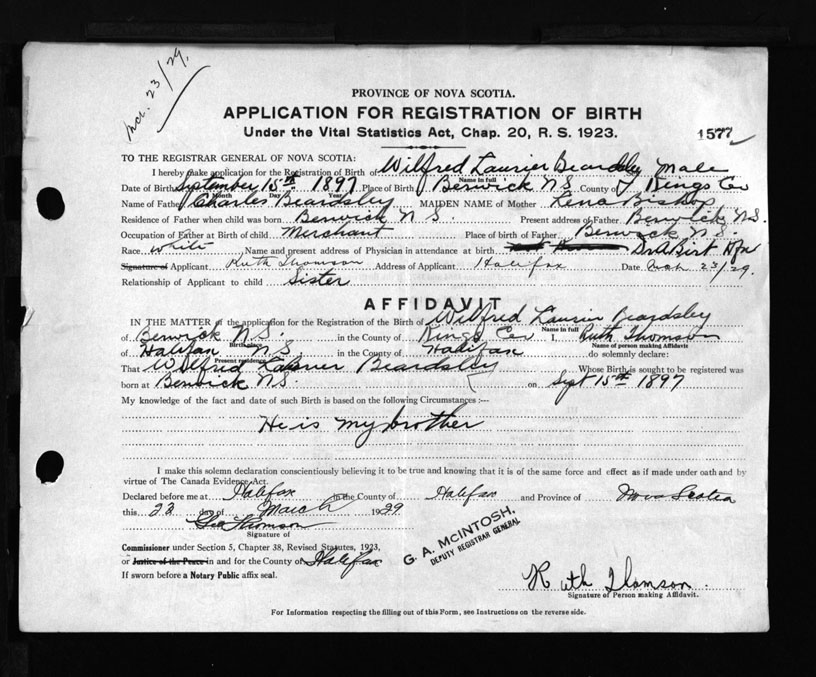 Mch. 23/29.
PROVINCE OF NOVA SCOTIA.
APPLICATION FOR REGISTRATION OF BIRTH
Under the Vital Statistics Act, Chap. 20, R. S. 1923.
1577
TO THE REGISTRAR GENERAL OF NOVA SCOTIA:
I hereby make application for the Registration of Birth of Wilfred Laurier Beardsley Male
Name in full
Date of Birth September 15th 1897 Place of Birth Berwick N S County of Kings Co
Month Day Year
Name of Father Charles Beardsley MAIDEN NAME of Mother Lena Bishop
Residence of Father when child was born Berwick N S. Present address of Father Berwick N.S.
Occupation of Father at Birth of child Merchant Place of birth of Father Berwick N. S.
Race white Name and present address of Physician in attendance at birth Dr A Birt Hfx
Signature of Applicant Ruth Thomson Address of Applicant Halifax Date Mch 23/29.
Relationship of Applicant to child Sister
AFFIDAVIT
IN THE MATTER of the application for the Registration of the Birth of Wilfred Laurier Beardsley
Name in full
of Berwick N.S. in the County of Kings Co I, Ruth Thomson
Birthplace Name of person making Affidavit
of Halifax N S in the County of Halifax do solemnly declare:
Present residence
That Wilfred Laurier Beardsley Whose Birth is sought to be registered was
born at Berwick N S. on Sept 15th 1897
My knowledge of the fact and date of such Birth is based on the following Circumstances :—
He is my brother
I make this solemn declaration conscientiously believing it to be true and knowing that it is of the same force and effect as if made under oath and by
virtue of The Canada Evidence Act.
Declared before me at Halifax in the County of Halifax and Province of Nova Scotia
this 23 day of March 1929
Geo Thomson
Signature of
Commissioner under Section 5, Chapter 38, Revised Statutes, 1923,
or Justice of the Peace in and for the County of Halifax
If sworn before a Notary Public affix seal.
G. A. McINTOSH,
DEPUTY REGISTRAR GENERAL
Ruth Thomson
Signature of Person making Affidavit.
For Information respecting the filling out of this Form, see Instructions on the reverse side.